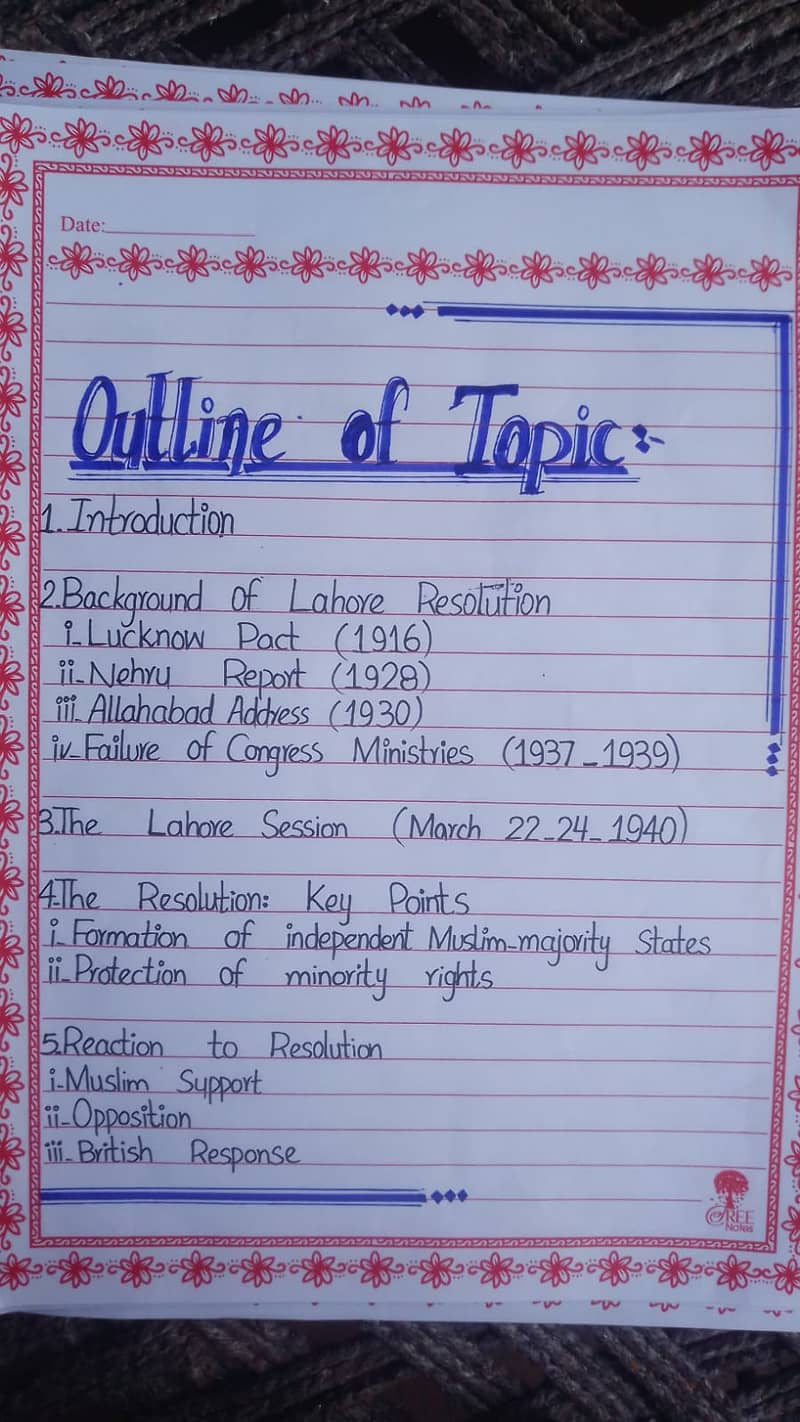 Date:
Outline of Topic:-
1. Introduction
2.Background Of Lahore Resolution
i-Lucknow Pact (1916)
ii-Nehru Report (1928)
iii. Allahabad Address (1930)
iv-Failure of Congress Ministries (1937-1939)
3.The Lahore Session (March 22-24-1940)
4.The Resolution: Key Points
i-Formation of independent Muslim-majority States
ii-Protection of minority rights
5.Reaction to Resolution
i-Muslim Support
ii-Opposition
iii-British Response
TREE
Notes